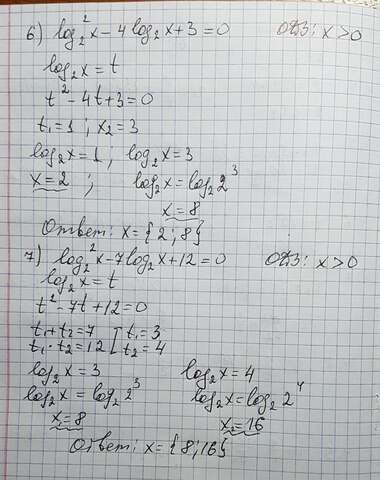 6) log₂²x - 4 log₂x + 3 = 0 ОДЗ: x > 0
log₂x = t
t² - 4t + 3 = 0
t₁ = 1 ; x₂ = 3
log₂x = 1 , log₂x = 3
x = 2 ; log₂x = log₂2³
x = 8
Ответ: x = {2 ; 8}
7) log₂²x - 7log₂x + 12 = 0 ОДЗ: x > 0
log₂x = t
t² - 7t + 12 = 0
t₁ + t₂ = 7 [ t₁ = 3
t₁ · t₂ = 12 [ t₂ = 4
log₂x = 3 log₂x = 4
log₂x = log₂2³ log₂x = log₂2⁴
x₁ = 8 x₂ = 16
Ответ: x = {8 ; 16}